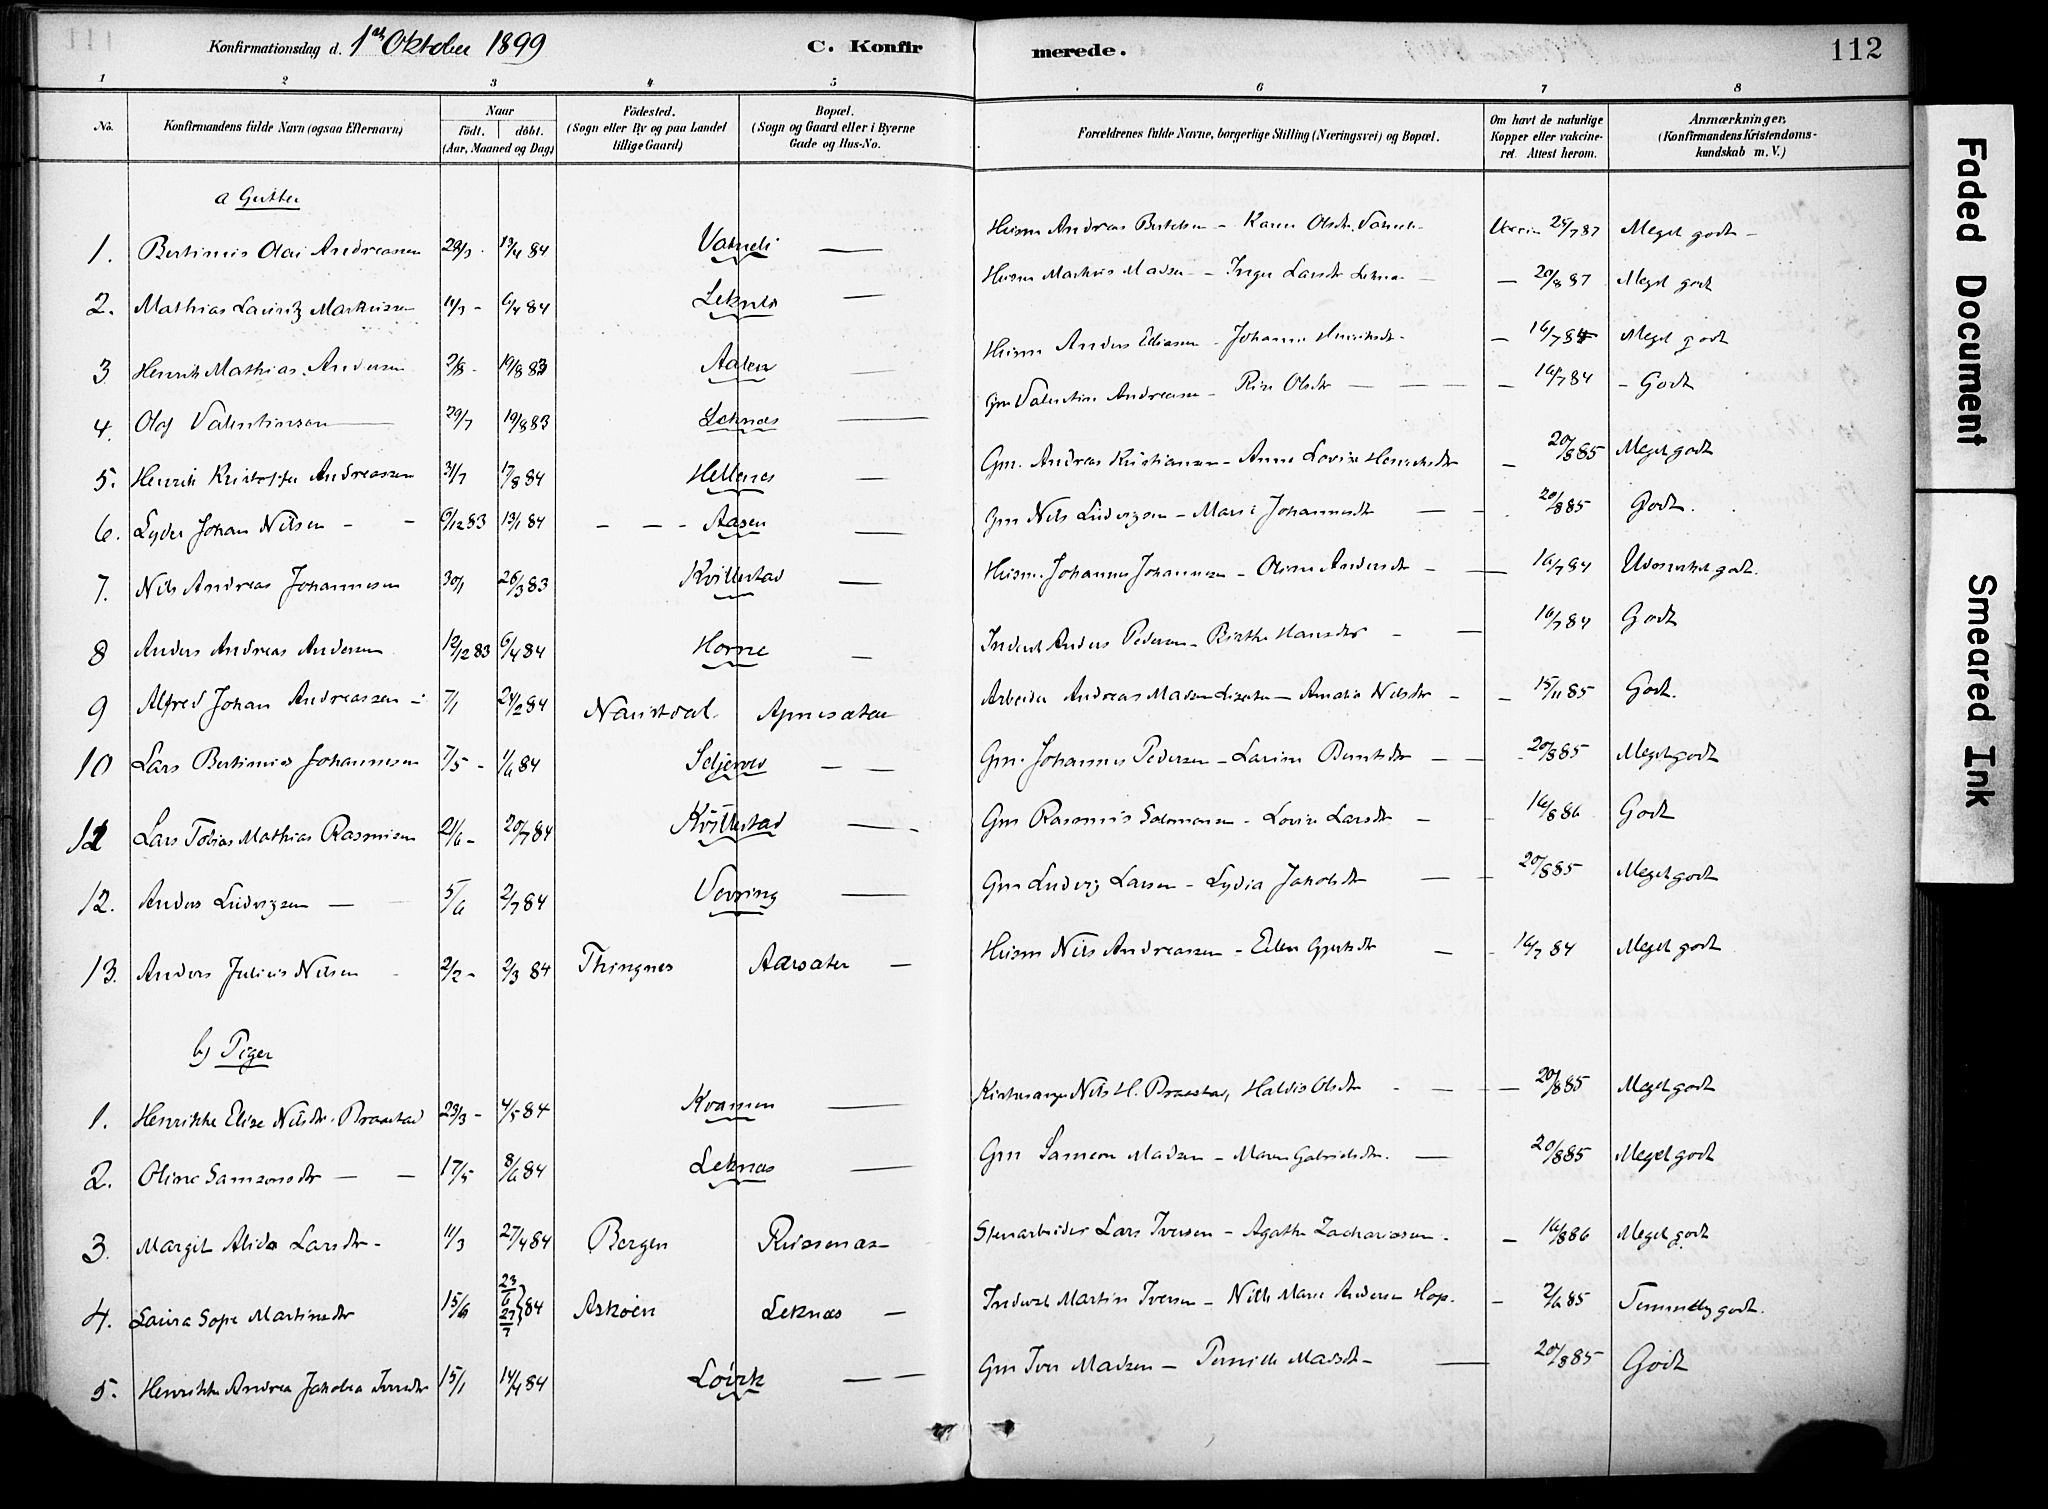 Konfirmationsdag d. 1ste Oktober 1899
C. Konfirmerede.
112
1 2 3 4 5 6 7 8
No.
Konfirmandens fulde Navn (ogsaa Efternavn)
Naar födt. döbt. (Aar, Maaned og Dag)
Födested. (Sogn eller By og paa Landet tillige Gaard)
Bopæl. (Sogn og Gaard eller i Byerne Gade og Hus-No.
Forældrenes fulde Navne, borgerlige Stilling (Næringsvei) og Bopæl.
Om havt de naturlige Kopper eller vakcineret. Attest herom.
Anmærkninger. (Konfirmandens Kristendomskundskab m. V.)
a Gutter
1. Bertinius Olai Andreassen 13/4 84 — Husm Andreas Bertelsen – Karen Olsdtr. 25/7 87 Meget godt –
2. Mathias Lauritz Markussen 11/3 – 6/4 84 Leknes — Husm Markus Madsen – Inger Larsdtr – 20/8 87 Meget godt
3 Henrik Mathias Andersen 2/8 – 19/8 83 Aasen — Husm Anders Eliasen – Johanne Henriksdtr – 16/7 84 Meget godt
4. Olaf Valentinsen 29/7 19/8 83 Leknæs — Gm Valentin Andreasen – Olsdtr — — – 16/7 84 – Godt
5. Henrik Kristoffer Andreassen 31/7 17/8 84 Hellenes — Gm. Andreas Kristiansen – Anne Lovise Henriksdtr – 20/8 85 Meget godt
6. Lyder Johan Nilsen – – 6/12 83 13/1 84 – – – Aasen — Gm Nils Ludvigsen – Marie Johannesdtr — 20/8 85 Godt.
7. Nils Andreas Johannesen 30/1 26/3 83 Kvillestad — Husm. Johannes Johannesen – Oline Andersdtr – — 16/7 84 Udmerket godt.
8 Anders Andreas Andersen 12/12 83 6/4 84 Horne – Inderst Anders Pedersen – Birthe Hansdtr – — 16/7 84 Godt
9 Alfred Johan Andreassen – 7/1 24/2 84 Naustdal Apnesæter Arbeider Andreas Madsen – Amalia Nilsdtr – – 15/11 85 Godt.
10 Lars Bertinius Johannesen 7/5 – 1/6 84 — — Gm. Johannes Pedersen – Larine Berntsdtr – — 20/8 85 Meget godt
11 Lars Tobias Mathias Rasmusen 21/6 – 20/7 84 Kvillestad — Gm Rasmus Salomonsen – Lovise Larsdtr – 16/8 86 Godt
12. Anders Ludvigsen — 5/6 2/7 84 Vevring — Gm Ludvig Larsen – Lydia Jakobsdtr — — 20/8 85 Meget godt
13. Anders Julius Nilsen – 2/2 – 2/3 84 Thingnes Aarsæter — Husm Nils Andreassen – Ellen Gjertsdtr — – 16/7 84 Meget godt
b) Piger
1. Henrikke Elise Nilsdtr. Praestad 23/3 – 4/5 84 Kvamen — Kirkesanger Nils H. Praestad, Haldis Olsdtr – — — 20/8 85 Meget godt
2. Oline Samsonsdtr — — 17/5 8/6 84 Leknæs — Gm Samson Madsen – Maren Gabrielsdtr. — 20/8 85 Meget godt
3. Margit Alida Larsdtr – 11/3 27/4 84 Bergen Russenæs Stenarbeider Lars Iversen – Agathe Zachariassen. – 16/8 86 Meget godt
4. Laura Sofie Martinsdtr 15/6 23/6 27/7 84 Askøen Leknæs – Inderst Martin Iversen – Nille Marie Andersen Hop. – 2/6 85 Temmelig godt.
5. Henrikke Andrea Jakobea Iversdtr 15/1 14/4 84 Løvik — – Gm Iver Madsen – Pernille Madsdtr – — 20/8 85 Godt
Faded Document
Smeared Ink